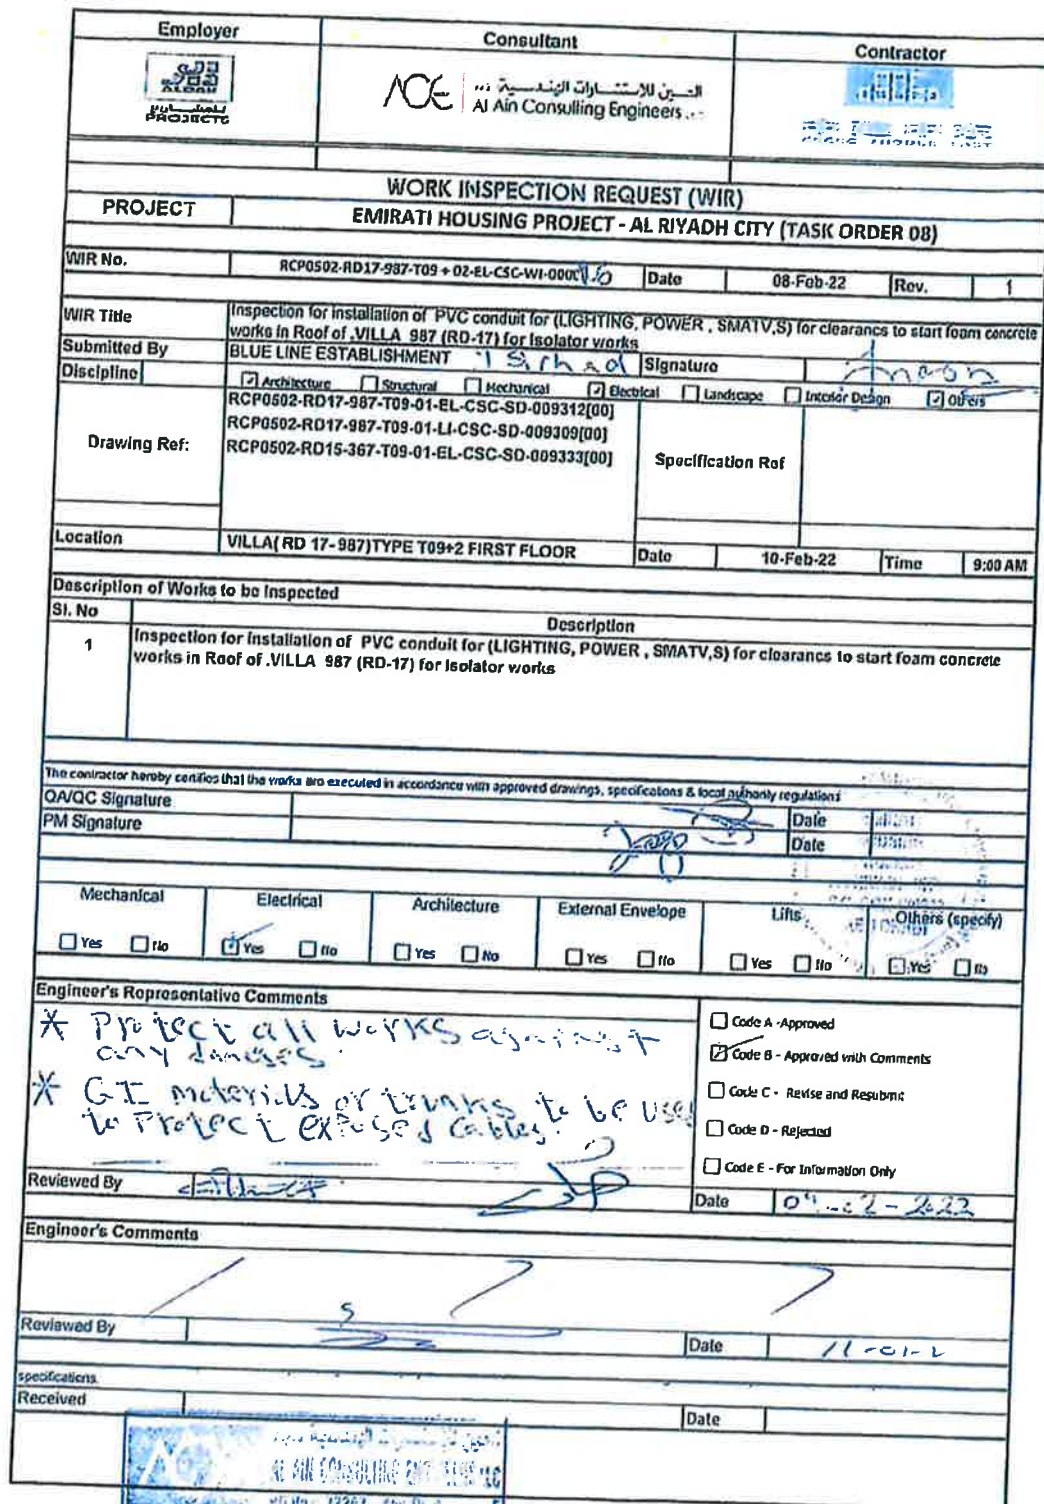 Employer
Consultant
Contractor
ALDAR
PROJECTS
ACE
Al Ain Consulting Engineers
WORK INSPECTION REQUEST (WIR)
PROJECT EMIRATI HOUSING PROJECT - AL RIYADH CITY (TASK ORDER 08)
WIR No. RCP0502-RD17-987-T09 + 02-EL-CSC-WI-000 Date 08-Feb-22 Rev. 1
WIR Title Inspection for installation of PVC conduit for (LIGHTING, POWER , SMATV,S) for clearancs to start foam concrete
works in Roof of .VILLA 987 (RD-17) for Isolator works
Submitted By BLUE LINE ESTABLISHMENT Signature
Discipline Architecture Structural Mechanical Electrical Landscape Interior Design Others
Drawing Ref: RCP0502-RD17-987-T09-01-EL-CSC-SD-009312[00]
RCP0502-RD17-987-T09-01-LI-CSC-SD-009309[00]
RCP0502-RD15-367-T09-01-EL-CSC-SD-009333[00]
Specification Ref
Location VILLA( RD 17- 987)TYPE T09+2 FIRST FLOOR Date 10-Feb-22 Time 9:00 AM
Description of Works to be Inspected
Sl. No Description
1 Inspection for installation of PVC conduit for (LIGHTING, POWER , SMATV,S) for clearancs to start foam concrete
works in Roof of .VILLA 987 (RD-17) for Isolator works
The contractor hereby certifies that the works are executed in accordance with approved drawings, specifications & local authority regulations
QA/QC Signature Date
PM Signature Date
Mechanical Electrical Architecture External Envelope Lifts Others (specify)
Yes No Yes No Yes No Yes No Yes No Yes No
Engineer's Representative Comments
* Protect all works against
any
* GI materials or trunks to be used
to Protect exposed cables.
Code A -Approved
Code B - Approved with Comments
Code C - Revise and Resubmit
Code D - Rejected
Code E - For Information Only
Reviewed By Date
Engineer's Comments
Reviewed By Date
specifications.
Received Date
AL AIN CONSULTING